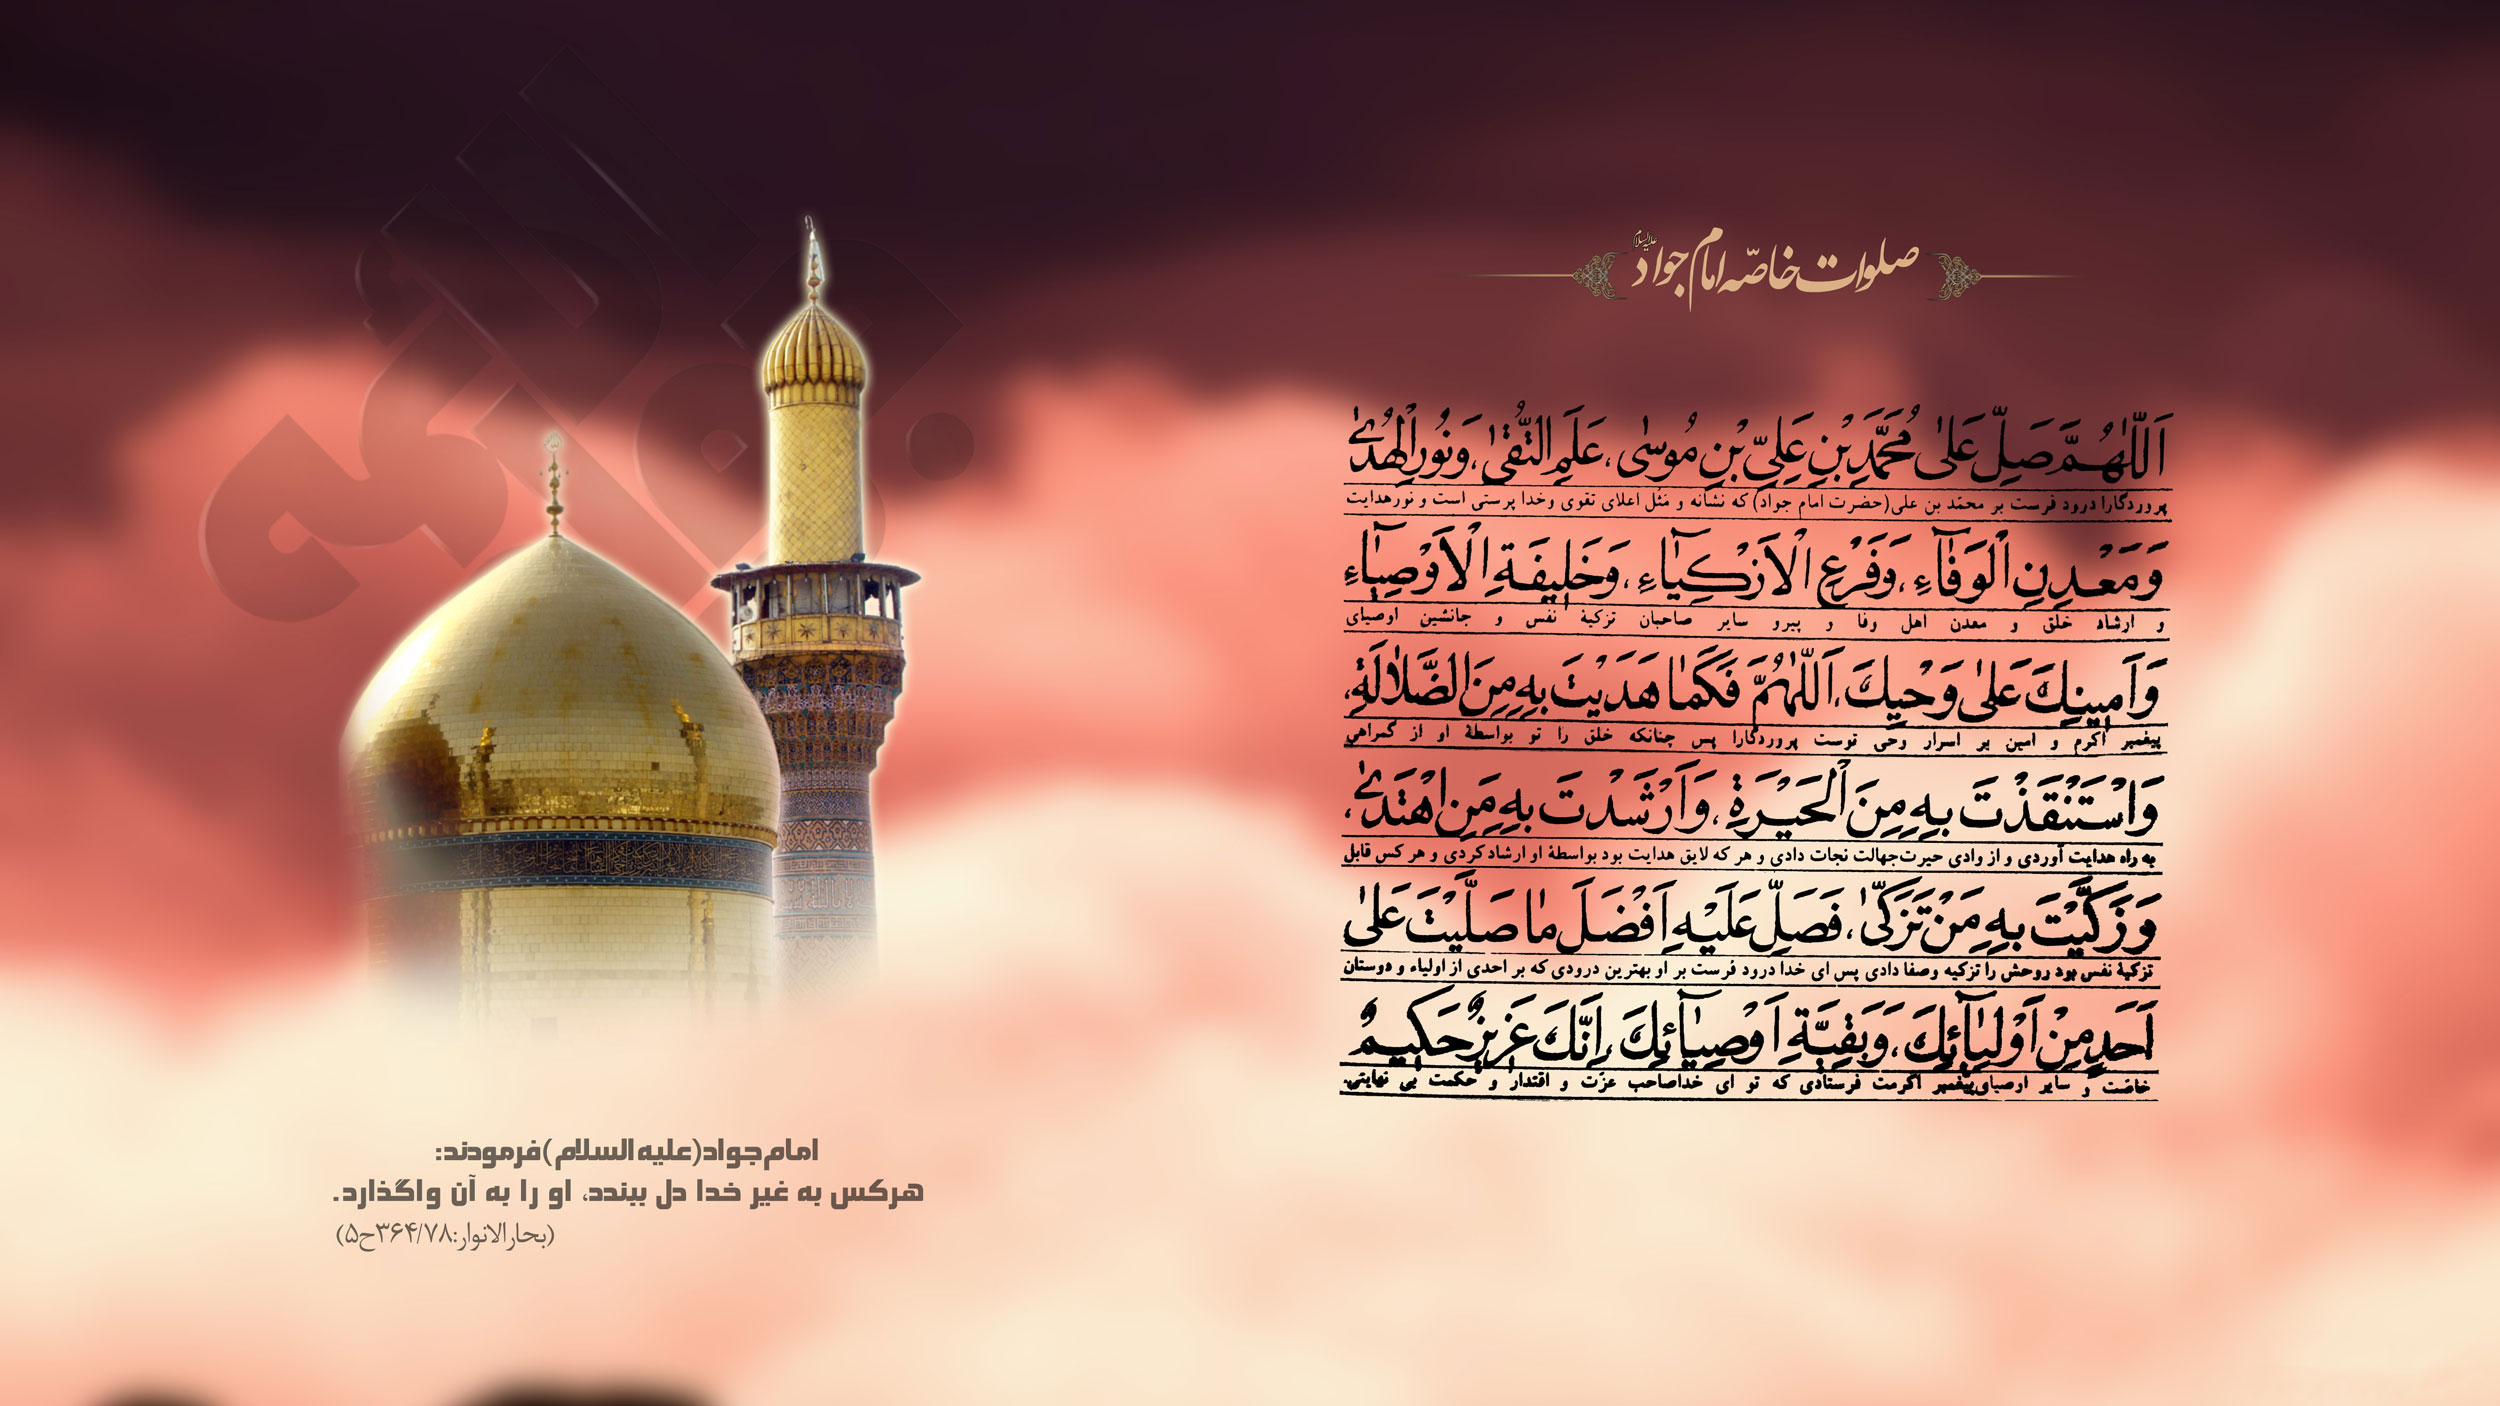 صلوات خاصّه امام جواد علیه السلام
اَللّٰهُمَّ صَلِّ عَلىٰ مُحَمَّدِ بْنِ عَلِيِّ بْنِ مُوسٰى، عَلَمِ التُّقىٰ، وَنُورِ الْهُدىٰ
پروردگارا درود فرست بر محمّد بن علی (حضرت امام جواد) که نشانه و مَثَل اعلای تقوی وخدا پرستی است و نور هدایت
وَمَعْدِنِ الْوَفٰآءِ، وَفَرْعِ الْاَزْكِيٰآءِ، وَخَلِيفَةِ الْاَوْصِيٰآءِ
و ارشاد خلق و معدن اهل وفا و پیرو سایر صاحبان تزکیهٔ نفس و جانشین اوصیای
وَاَمِينِكَ عَلىٰ وَحْيِكَ، اَللّٰهُمَّ فَكَمٰا هَدَيْتَ بِهِ مِنَ الضَّلاٰلَةِ،
پیغمبر اکرم و امین بر اسرار وحی توست پروردگارا پس چنانکه خلق را تو بواسطهٔ او از گمراهی
وَاسْتَنْقَذْتَ بِهِ مِنَ الْحَيْرَةِ، وَاَرْشَدْتَ بِهِ مَنِ اهْتَدىٰ،
به راه هدایت آوردی و از وادی حیرت جهالت نجات دادی و هر که لایق هدایت بود بواسطهٔ او ارشاد کردی و هر کس قابل
وَزَكَّيْتَ بِهِ مَنْ تَزَكّىٰ، فَصَلِّ عَلَيْهِ اَفْضَلَ مٰا صَلَّيْتَ عَلىٰ
تزکیهٔ نفس بود روحش را تزکیه وصفا دادی پس ای خدا درود فرست بر او بهترین درودی که بر احدی از اولیاء و دوستان
اَحَدٍ مِنْ اَوْلِيٰآئِكَ، وَبَقِيَّةِ اَوْصِيٰآئِكَ، اِنَّكَ عَزِيزٌ حَكِيمٌ
خاصّت و سایر اوصیای پیغمبر اکرمت فرستادی که تو ای خدا صاحب عزّت و اقتدار و حکمت بی نهایتی.
امام جواد(علیه السلام)فرمودند:
هرکس به غیر خدا دل ببندد، او را به آن واگذارد.
(بحارالانوار:۳۶۴/۷۸ح۵)